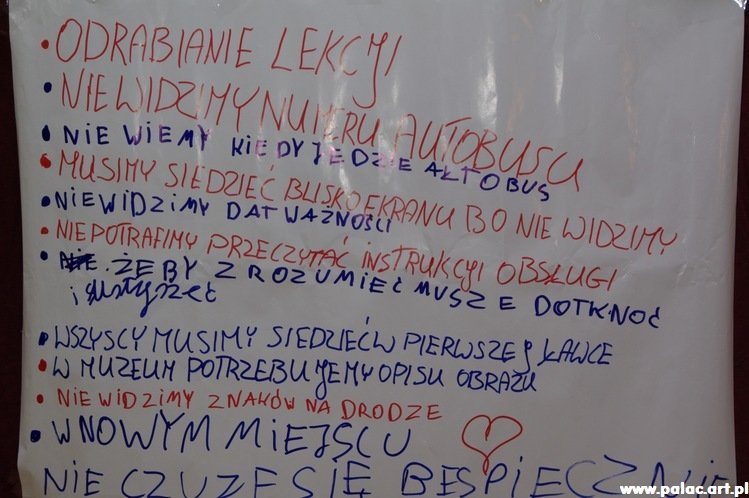 • ODRABIANIE LEKCYJ
• NIEWIDZIMY NUMERU AUTOBUSU
• NIE WIEMY KIEDY JEDZIE AŁTOBUS
• MUSIMY SIEDZIEĆ BLISKO EKRANU BO NIE WIDZIMY
• NIEWIDZIMY DAT WAŻNOŚCI
• NIEPOTRAFIMY PRZECZYTAĆ INSTRUKCYJ OBSŁUGI
• NIE. ŻEBY ZROZUMIEĆ MUSZE DOTKNOĆ
i
• WSZYSCY MUSIMY SIEDZIEĆ W PIERWSZEJ ŁAWCE
• W MUZEUM POTRZEBUJEMY OPISU OBRAZU
• NIE WIDZIMY ZNAKÓW NA DRODZE
• W NOWYM MIEJSCU
NIE CZUZE SIĘ BESPIECZNIE
www.palac.art.pl